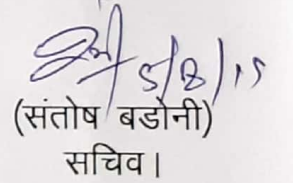 5/8/15
(संतोष बडोनी)
सचिव।